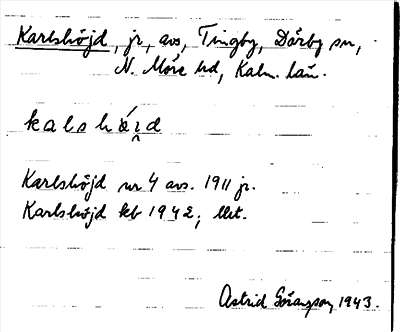 Karlshöjd, jr, avs, Tingby, Dörby sn,
N. Möre hd, Kalm. län.
kalshöid
Karlshöjd nr 4 avs. 1911 jr.
Karlshöjd kb 1942;
Astrid Göransson 1943.